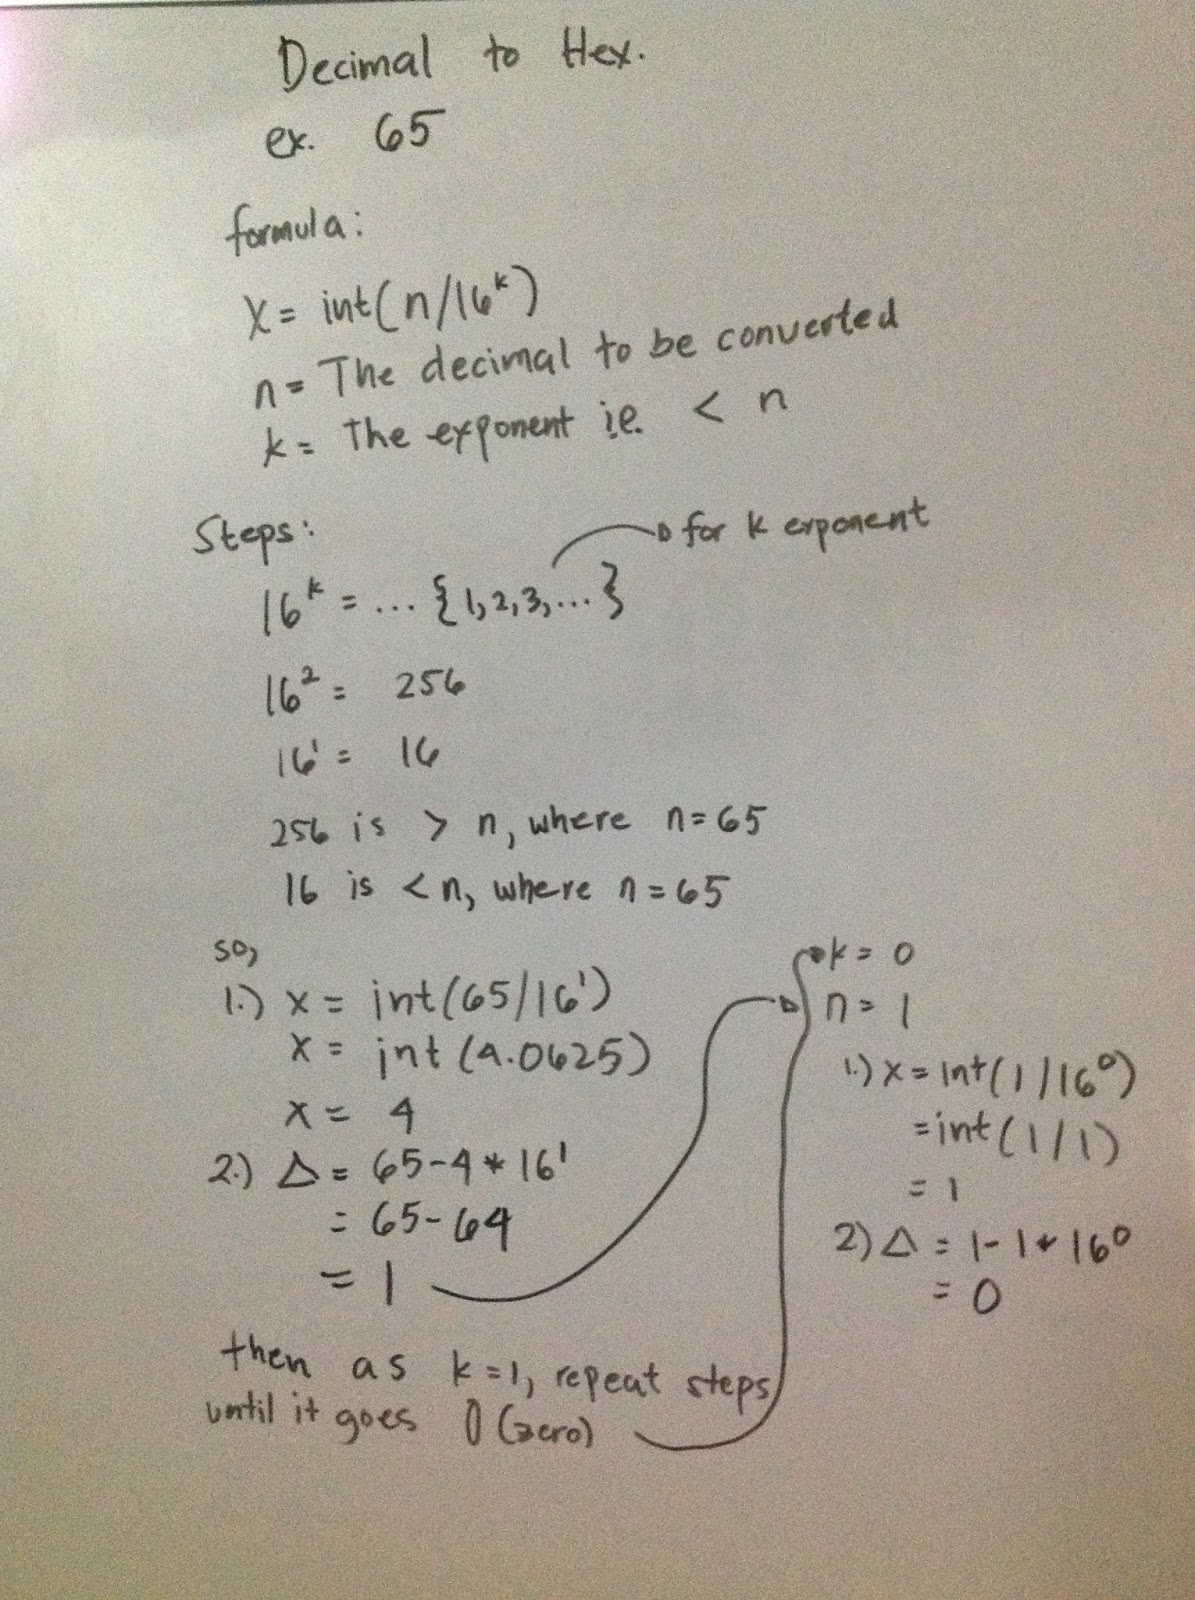 Decimal to Hex.
ex. 65
formula:
X = int(n/16^k)
n = The decimal to be converted
k = The exponent i.e. < n
Steps:
for k exponent
16^k = ... {1,2,3,...}
16² = 256
16¹ = 16
256 is > n, where n=65
16 is < n, where n=65
so,
1.) x = int(65/16¹)
x = int(4.0625)
x = 4
2.) Δ = 65-4*16¹
= 65-64
= 1
then as k=1, repeat steps
until it goes 0 (zero)
k = 0
n = 1
1.) x = int(1/16⁰)
= int(1/1)
= 1
2) Δ = 1-1*16⁰
= 0